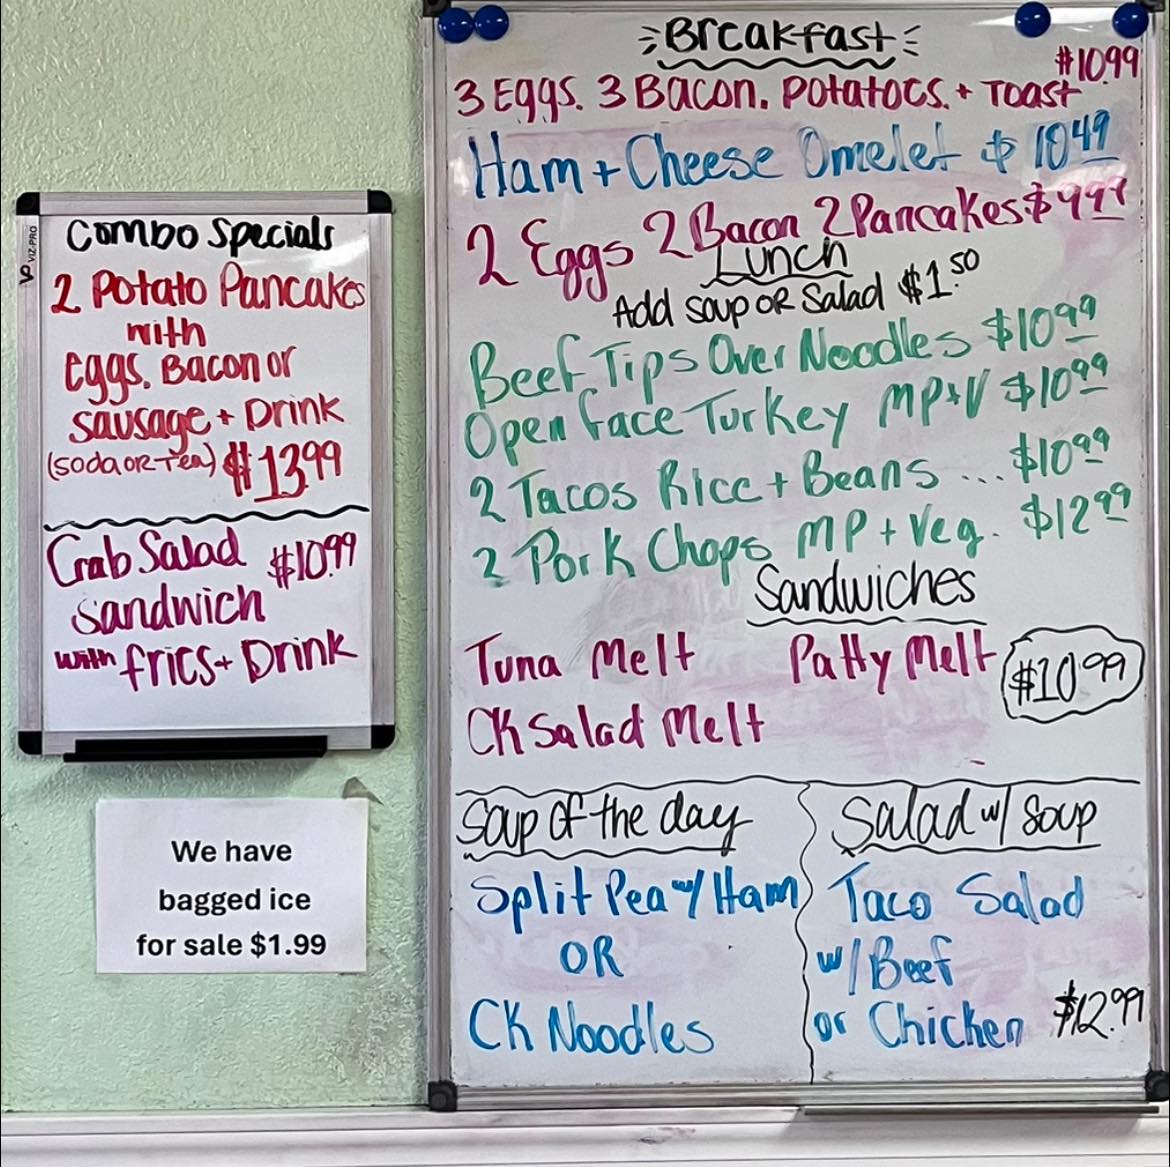 VP VIZ-PRO
Combo Specials
2 Potato Pancakes
with
eggs. Bacon or
sausage + Drink
(soda or Tea) $13.99
Crab Salad $10.99
sandwich
with fries + Drink
We have
bagged ice
for sale $1.99
Breakfast
$10.99
3 Eggs. 3 Bacon. Potatoes. + Toast
Ham + Cheese Omelet $10.49
2 Eggs 2 Bacon 2 Pancakes $9.99
Lunch
Add soup or Salad $1.50
Beef Tips Over Noodles $10.99
Open face Turkey MP+V $10.99
2 Tacos Rice + Beans ... $10.99
2 Pork Chops MP + Veg. $12.99
Sandwiches
Tuna Melt Patty Melt $10.99
CK Salad Melt
Soup of the day
Split Pea w/ Ham
OR
CK Noodles
Salad w/ Soup
Taco Salad
w/ Beef
or Chicken $12.99